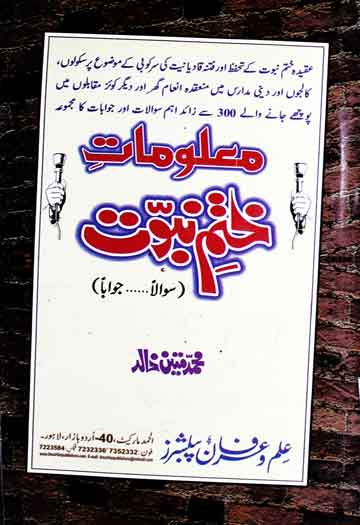 عقیدہ ختم نبوت کے تحفظ اور فتنہ قادیانیت کی سرکوبی کے موضوع پر سکولوں،
کالجوں اور دینی مدارس میں منعقدہ انعام گھر اور دیگر کوئز مقابلوں میں
پوچھے جانے والے 300 سے زائد اہم سوالات اور جوابات کا مجموعہ
معلوماتِ
ختمِ نبوّت
(سوالاً...... جواباً)
محمد متین خالد
علم و عرفان پبلشرز
الحمد مارکیٹ، 40-اُردو بازار، لاہور۔
فون: 7232336 / 7352332 فیکس: 7223584